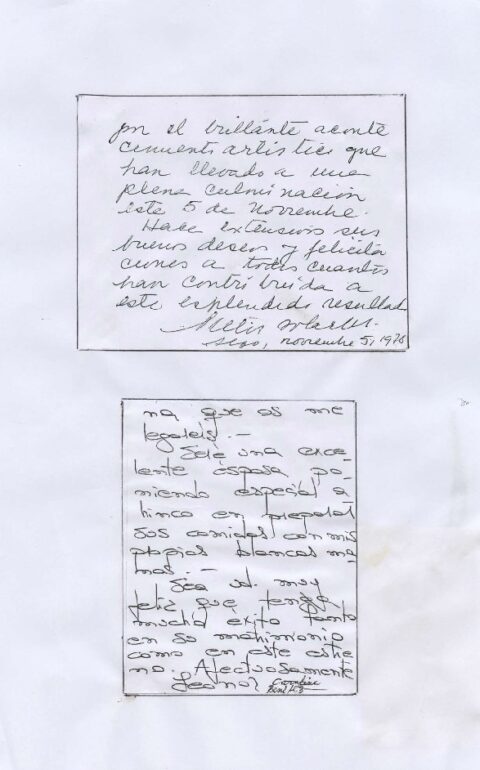 por el brillante aconte
cimiento artistico que
han llevado a una
plena culminación
este 5 de Noviembre.
Hace extensivos sus
buenos deseos y felicita
ciones a todos cuantos
han contribuido a
este esplendido resultado
noviembre 5, 1976
na que os me
legareis. -
Seré una exce-
lente esposa po-
niendo especial a-
hinco en preparar
sus comidas con mis
propias blancas ma-
nos. -
Sea ud. muy
feliz que tenga
mucho éxito tanto
en su matrimonio
como en este estre
no. Afectuosamente
Leonor